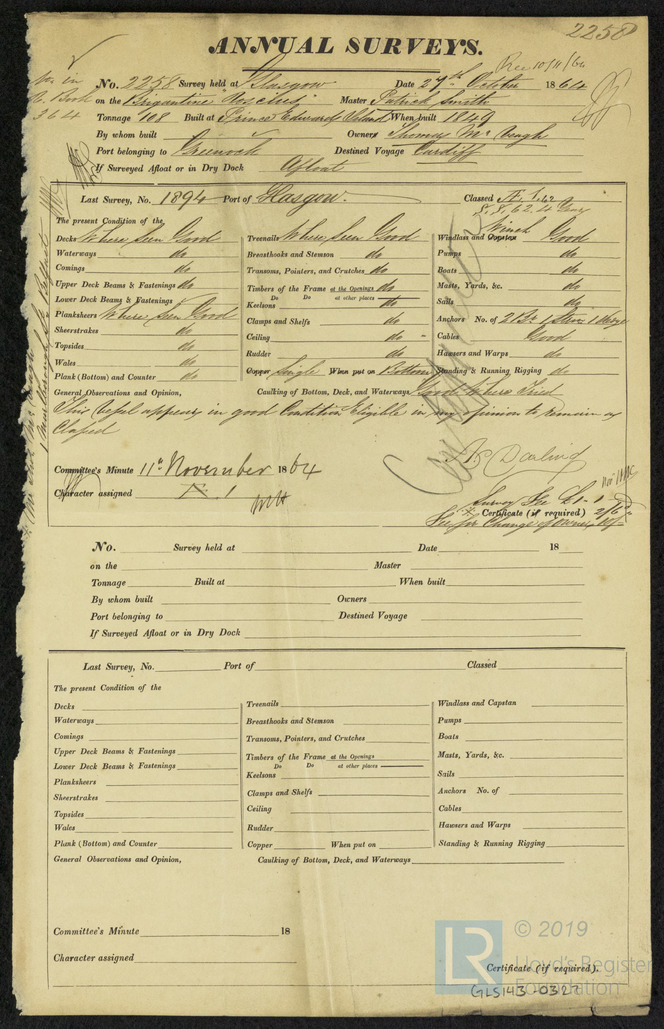 2258
ANNUAL SURVEYS.
Rec 10/11/64
No. 2258 Survey held at Glasgow Date 27th October 1864
on the Brigantine Roscius Master Patrick Smith
Tonnage 108 Built at Prince Edward Island When built 1849
By whom built Owners Thomas Mc
Port belonging to Greenock Destined Voyage Cardiff
If Surveyed Afloat or in Dry Dock Afloat
Last Survey, No. 1894 Port of Glasgow. Classed
The present Condition of the
Decks Where Seen Good
Waterways do
Comings do
Upper Deck Beams & Fastenings do
Lower Deck Beams & Fastenings
Planksheers Where Seen Good
Sheerstrakes do
Topsides do
Wales do
Plank (Bottom) and Counter do
Treenails Where Seen Good
Breasthooks and Stemson do
Transoms, Pointers, and Crutches do
Timbers of the Frame at the Openings do
Do Do at other places
Keelsons do
Clamps and Shelfs do
Ceiling do
Rudder do
Copper Single When put on Bottom
Winch
Windlass and Capstan Good
Pumps do
Boats do
Masts, Yards, &c. do
Sails do
Anchors No. of
Cables Good
Hawsers and Warps do
Standing & Running Rigging do
General Observations and Opinion, Caulking of Bottom, Deck, and Waterways Good where Tried
This Vessel appears in good Condition Eligible in my opinion to remain as
Classed
Committee's Minute 11th November 1864
Character assigned A. 1
Survey Fee £1-1
Certificate (if required) 2/6
Fee for Change of Owner
No. Survey held at Date 18
on the Master
Tonnage Built at When built
By whom built Owners
Port belonging to Destined Voyage
If Surveyed Afloat or in Dry Dock
Last Survey, No. Port of Classed
The present Condition of the
Decks
Waterways
Comings
Upper Deck Beams & Fastenings
Lower Deck Beams & Fastenings
Planksheers
Sheerstrakes
Topsides
Wales
Plank (Bottom) and Counter
Treenails
Breasthooks and Stemson
Transoms, Pointers, and Crutches
Timbers of the Frame at the Openings
Do Do at other places
Keelsons
Clamps and Shelfs
Ceiling
Rudder
Copper When put on
Windlass and Capstan
Pumps
Boats
Masts, Yards, &c.
Sails
Anchors No. of
Cables
Hawsers and Warps
Standing & Running Rigging
General Observations and Opinion, Caulking of Bottom, Deck, and Waterways
Committee's Minute 18
Character assigned
Certificate (if required).
LR © 2019
Lloyd's Register
Foundation
GLS143-0327